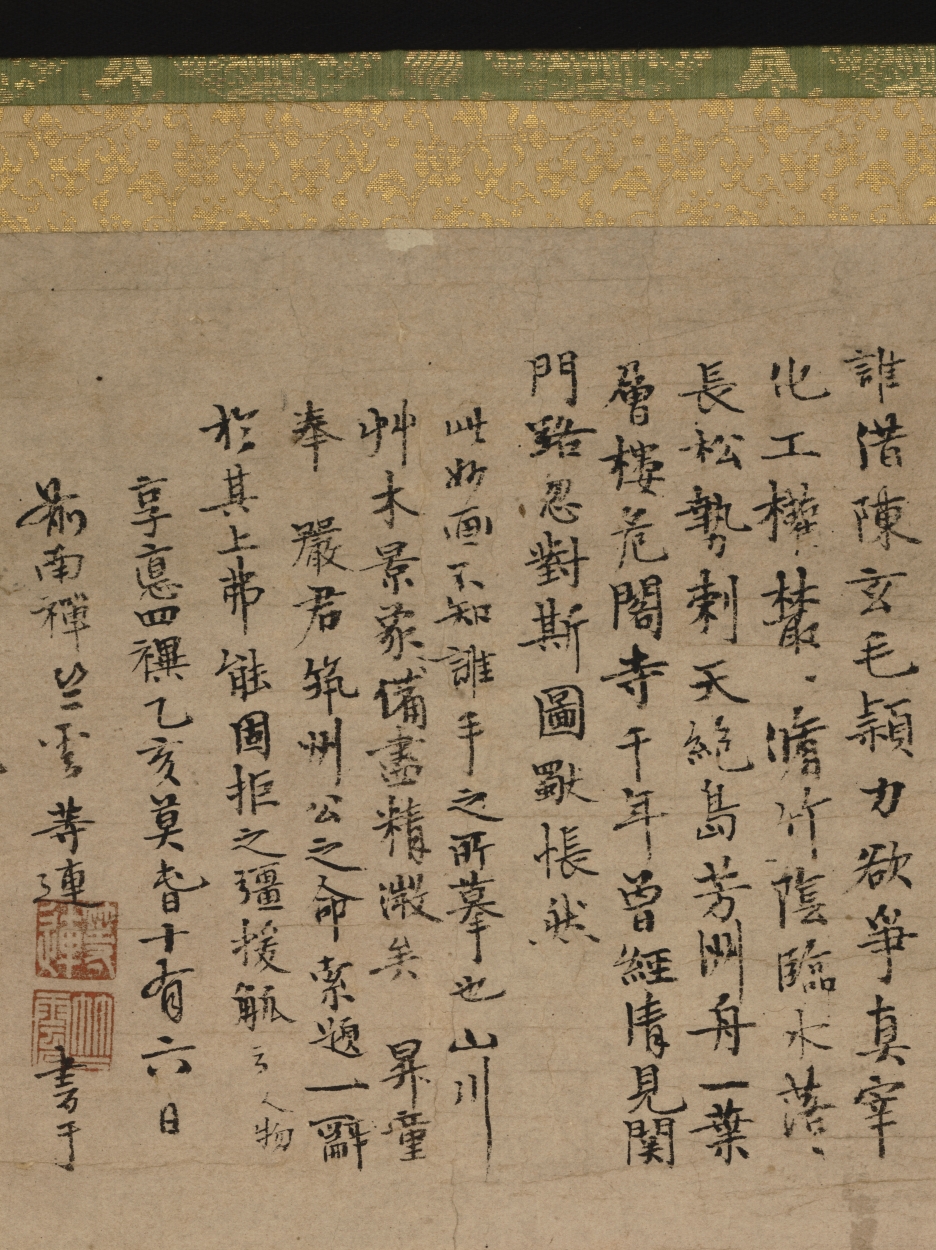 誰借陳玄毛頴力欲爭真宰
化工權叢〻簷竹陰臨水落〻
長松勢刺天絶島芳洲舟一葉
層樓危閣寺千年曾經清見関
門路忽對斯圖歎悵然
此妙画不知誰手之所摹也山川
艸木景象備盡精㣲矣　昇童
奉　嚴君筑州公之命索題一辭
於其上弗能固拒之彊援觚云
人物
享悳四禩乙亥莫春十有六日
前南禪竺雲等連　書于
等連
竺雲